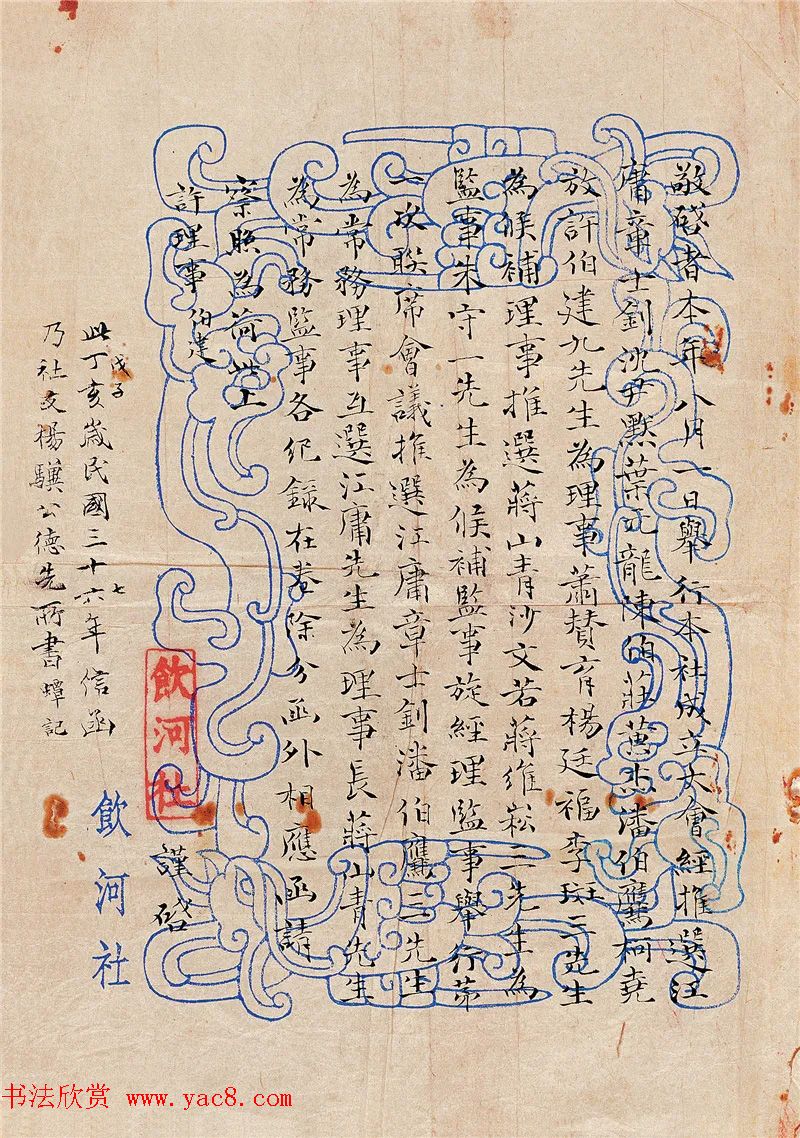 敬啓者本年八月一日舉行本社成立大會經推選江
庸章士釗沈尹默葉元龍陳伯莊萬杰潘伯鷹柯堯
放許伯建九先生為理事蕭贊育楊廷福李 三先生
為候補理事推選蔣山青沙文若蔣維崧三先生為
監事朱守一先生為候補監事旋經理監事舉行第
一次聯席會議推選江庸章士釗潘伯鷹三先生
為常務理事互選江庸先生為理事長蔣山青先生
為常務監事各紀錄在卷除分函外相應函請
察照為荷此上
許理事伯建
謹啓
飲河社
飲河社
戊子
此丁亥歲民國三十六年信函
七
乃社友楊驥公德先所書蟫記
书法欣赏 www.yac8.com